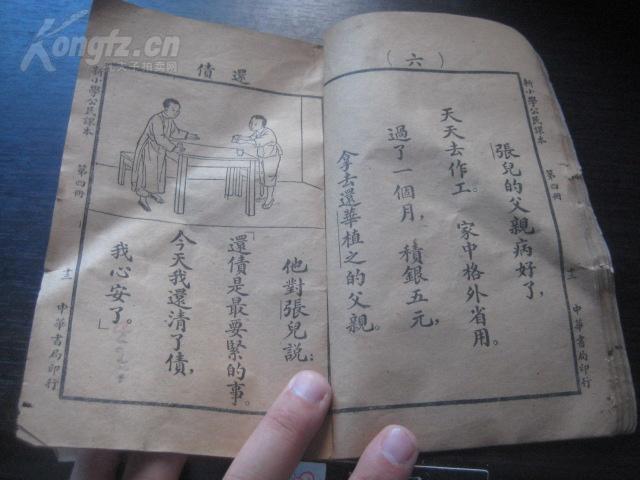 （六）
張兒的父親病好了，
天天去作工。家中格外省用。
過了一個月，積銀五元，
拿去還華植之的父親。
新小學公民課本 第四冊 十二 中華書局印行
還債
他對張兒說：
「還債是最要緊的事。
今天我還清了債，
我心安了。」
新小學公民課本 第四冊 十二 中華書局印行
Kongfz.cn
孔夫子拍卖网